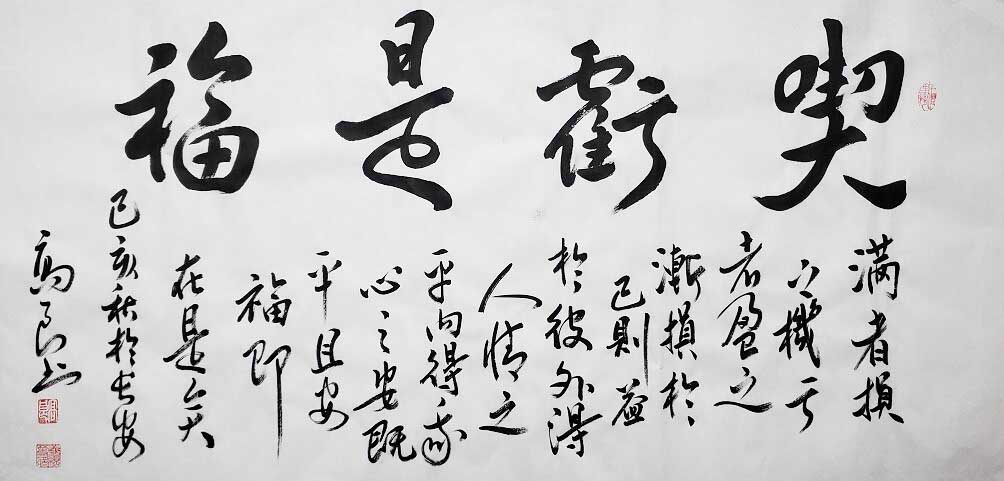 喫虧是福
满者損
之機亏
者盈之
漸損於
己則益
於彼外得
人情之
平內得我
心之安既
平且安
福即
在是矣
己亥秋於長安
高